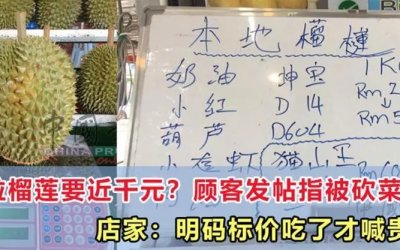 本地榴梿
奶油 坤宝 1KG
小红 D14 Rm2
葫芦 D604 Rm5
猫山王
CHINA PRE
粒榴莲要近千元？顾客发帖指被砍菜
店家：明码标价吃了才喊贵